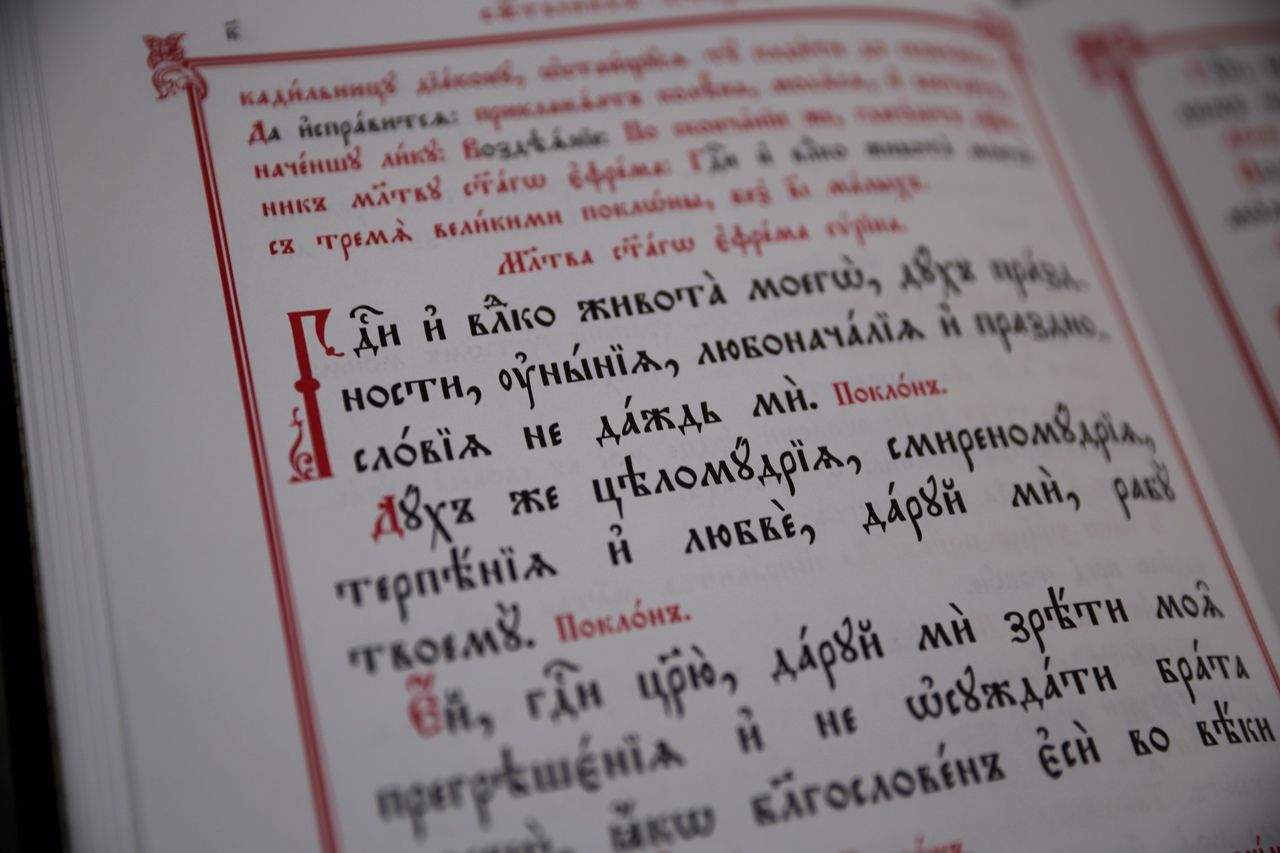 к҃
кади́льницꙋ дїа́конꙋ,
Да и҆спра́витсѧ: приклонѧ́ютъ кѡлѣ́на,
наче́ншꙋ ли́кꙋ: Воздѣ́ѧнїе: По сконча́нїи же,
никъ мл҃твꙋ ст҃а́гѡ є҆фре́ма: Гдⷭ҇и и҆ влⷣко живота̀ моегѡ̀
съ тремѧ̀ вели́кими поклѡ́ны, без̾ вї҃ ма́лыхъ.
Мл҃тва ст҃а́гѡ є҆фре́ма сѵ́рїна.
Гдⷭ҇и и҆ влⷣко живота̀ моегѡ̀, дꙋ́хъ пра́зд-
ности, ᲂу҆ны́нїѧ, любонача́лїѧ и҆ праздно-
сло́вїѧ не да́ждь мѝ. Покло́нъ.
Дꙋ́хъ же цѣломꙋ́дрїѧ, смиреномꙋ́дрїѧ,
терпѣ́нїѧ и҆ любвѐ, да́рꙋй мѝ, рабꙋ̀
твоемꙋ̀. Покло́нъ.
Є҆́й, гдⷭ҇и цр҃ю̀, да́рꙋй мѝ зрѣ́ти моѧ̑
прегрѣшє́нїѧ и҆ не ѡ҆сꙋжда́ти бра́та
ꙗ҆́кѡ бл҃гослове́нъ є҆сѝ во вѣ́ки